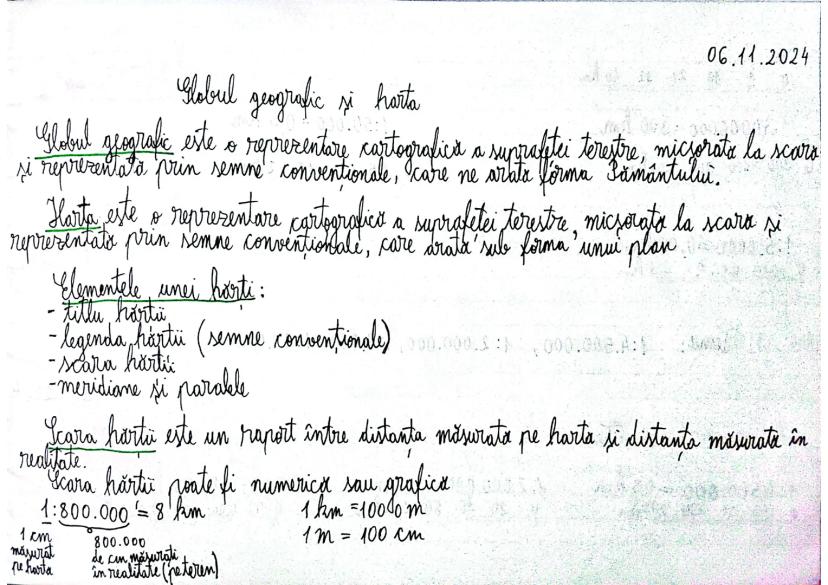 06.11.2024
Globul geografic și harta
Globul geografic este o reprezentare cartografică a suprafeței terestre, micșorată la scară
și reprezentată prin semne convenționale, care ne arată forma Pământului.
Harta este o reprezentare cartografică a suprafeței terestre, micșorată la scară și
reprezentată prin semne convenționale, care arată sub forma unui plan
Elementele unei hărți:
- titlu hărții
- legenda hărții (semne convenționale)
- scara hărții
- meridiane și paralele
Scara hărții este un raport între distanța măsurată pe hartă și distanța măsurată în
realitate.
Scara hărții poate fi numerică sau grafică
1:800.000 = 8 km 1 km = 1000 m
1 cm măsurat pe hartă 800.000 de cm măsurați în realitate (pe teren) 1 m = 100 cm